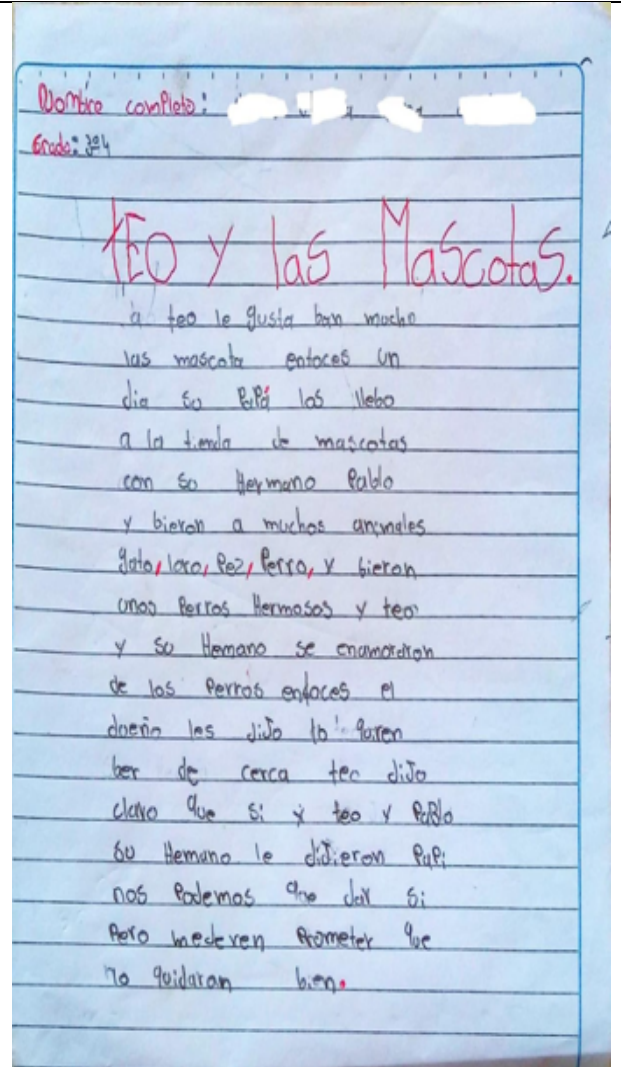 Nombre completo:
Grado: 3º4
tEO y las Mascotas.
a teo le gusta ban mucho
las mascota entoces un
dia su PaPá los llebo
a la tienda de mascotas
con su Hermano Pablo
y bieron a muchos animales
gato, loro, Pez, Perro, y bieron
unos Perros Hermosos y teo
y su Hemano se enamoraron
de los Perros entoces el
dueño les diJo lo quren
ber de cerca teo diJo
claro que si y teo y PaBlo
su Hemano le diJieron PaPi
nos Podemos que dar si
Pero mederen Prometer que
lo quidaran bien.